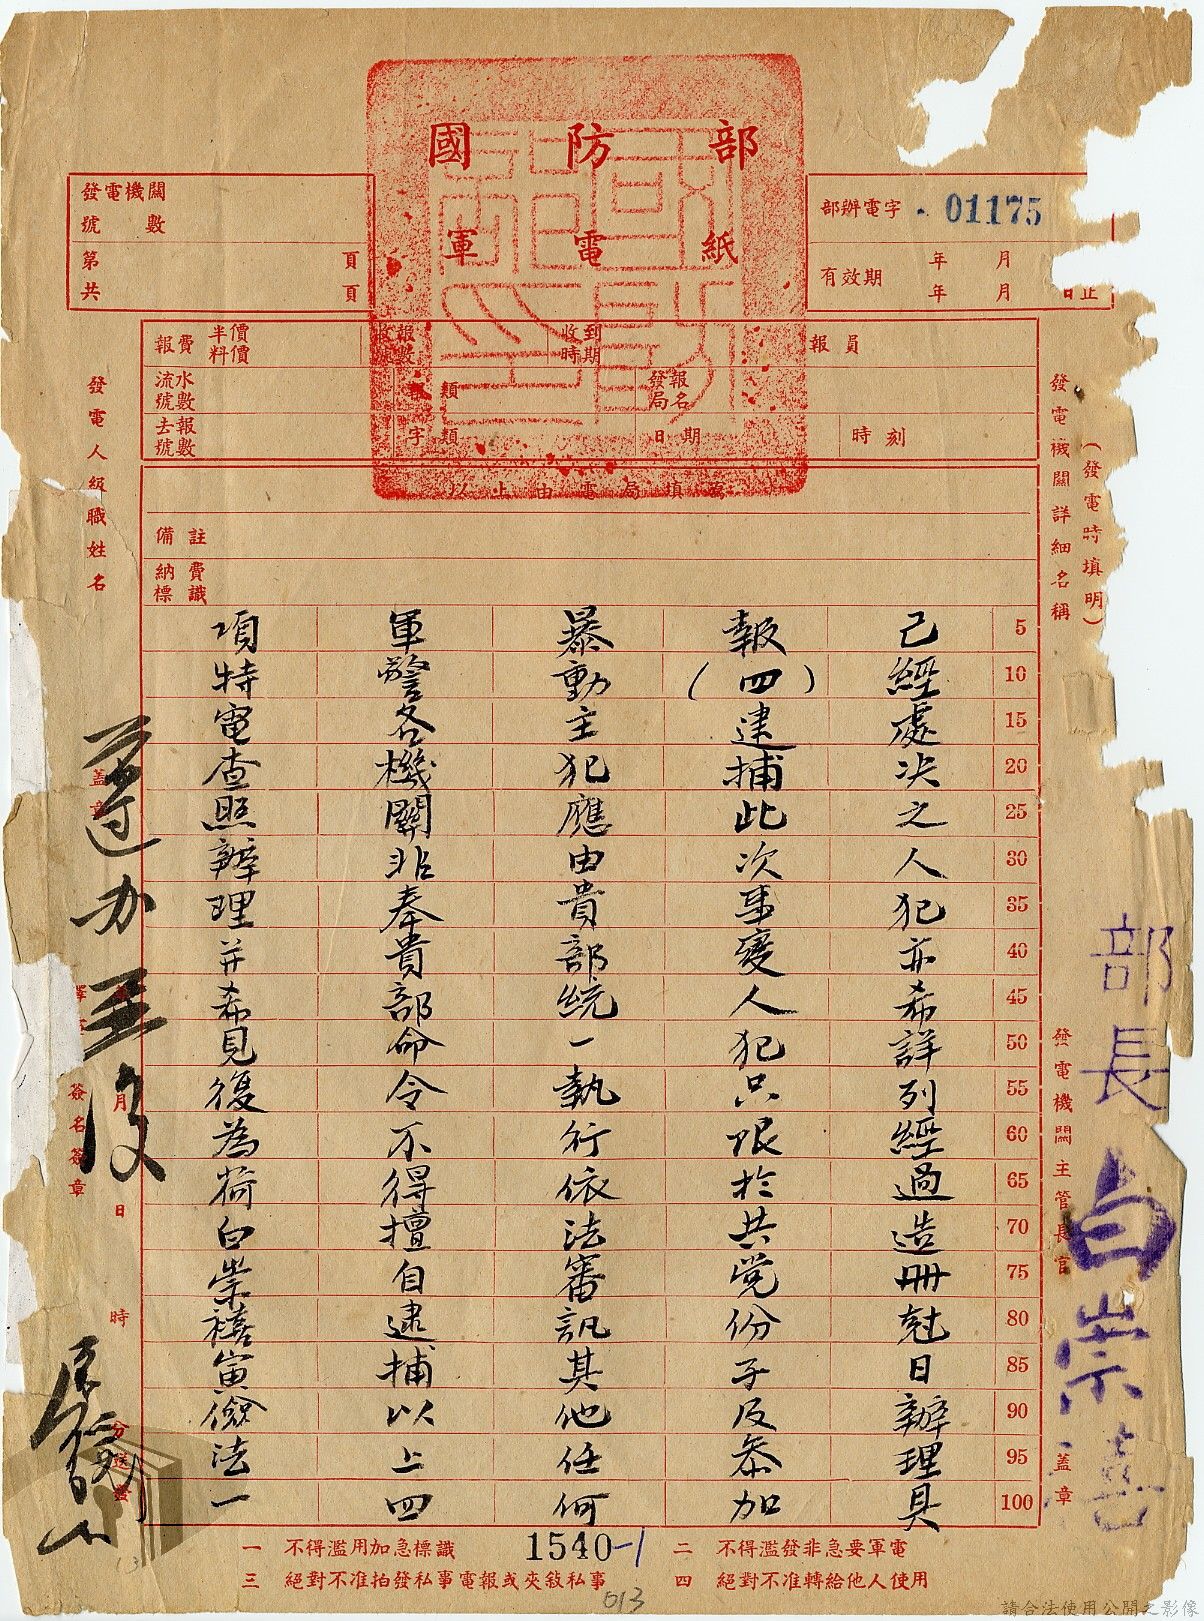 國防部
軍電紙
部辦電字 01175
有效期 年 月
年 月 日止
發電機關
號數
第 頁
共 頁
報費 半價
料價
收報
號數
收到
時期
報員
流水
號數
報類
發報
局名
去報
號數
字類
日期
時刻
以上由電局填寫
備註
納費
標識
(發電時填明)
發電機關詳細名稱
發電機關主管長官
蓋章
部長白崇禧
5
10
15
20
25
30
35
40
45
50
55
60
65
70
75
80
85
90
95
100
已經處决之人犯亦希詳列經過造冊尅日辦理具
報(四)逮捕此次事變人犯只限於共党份子及参加
暴動主犯應由貴部統一執行依法審訊其他任何
軍警各機關非奉貴部命令不得擅自逮捕以上四
項特電查照辦理并希見復為荷白崇禧寅儉法一
發電人級職姓名
蓋章
月 日 時
簽名簽章
遵办
一 不得濫用加急標識
二 不得濫發非急要軍電
三 絕對不准拍發私事電報或夾敘私事
四 絕對不准轉給他人使用
1540-1
013
請合法使用公開之影像